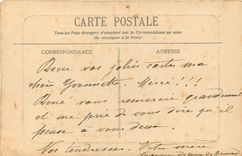 CARTE POSTALE
Tous les Pays étrangers n'acceptent pas la Correspondance au recto
(Se renseigner à la Poste)
CORRESPONDANCE ADRESSE
Reçu vos jolies cartes ma
chère Yvonnette. Merci!!!
René vous remercie grandement
et me prie de vous dire qu'il
pense à vous deux.
Vos tendresses. Votre mère